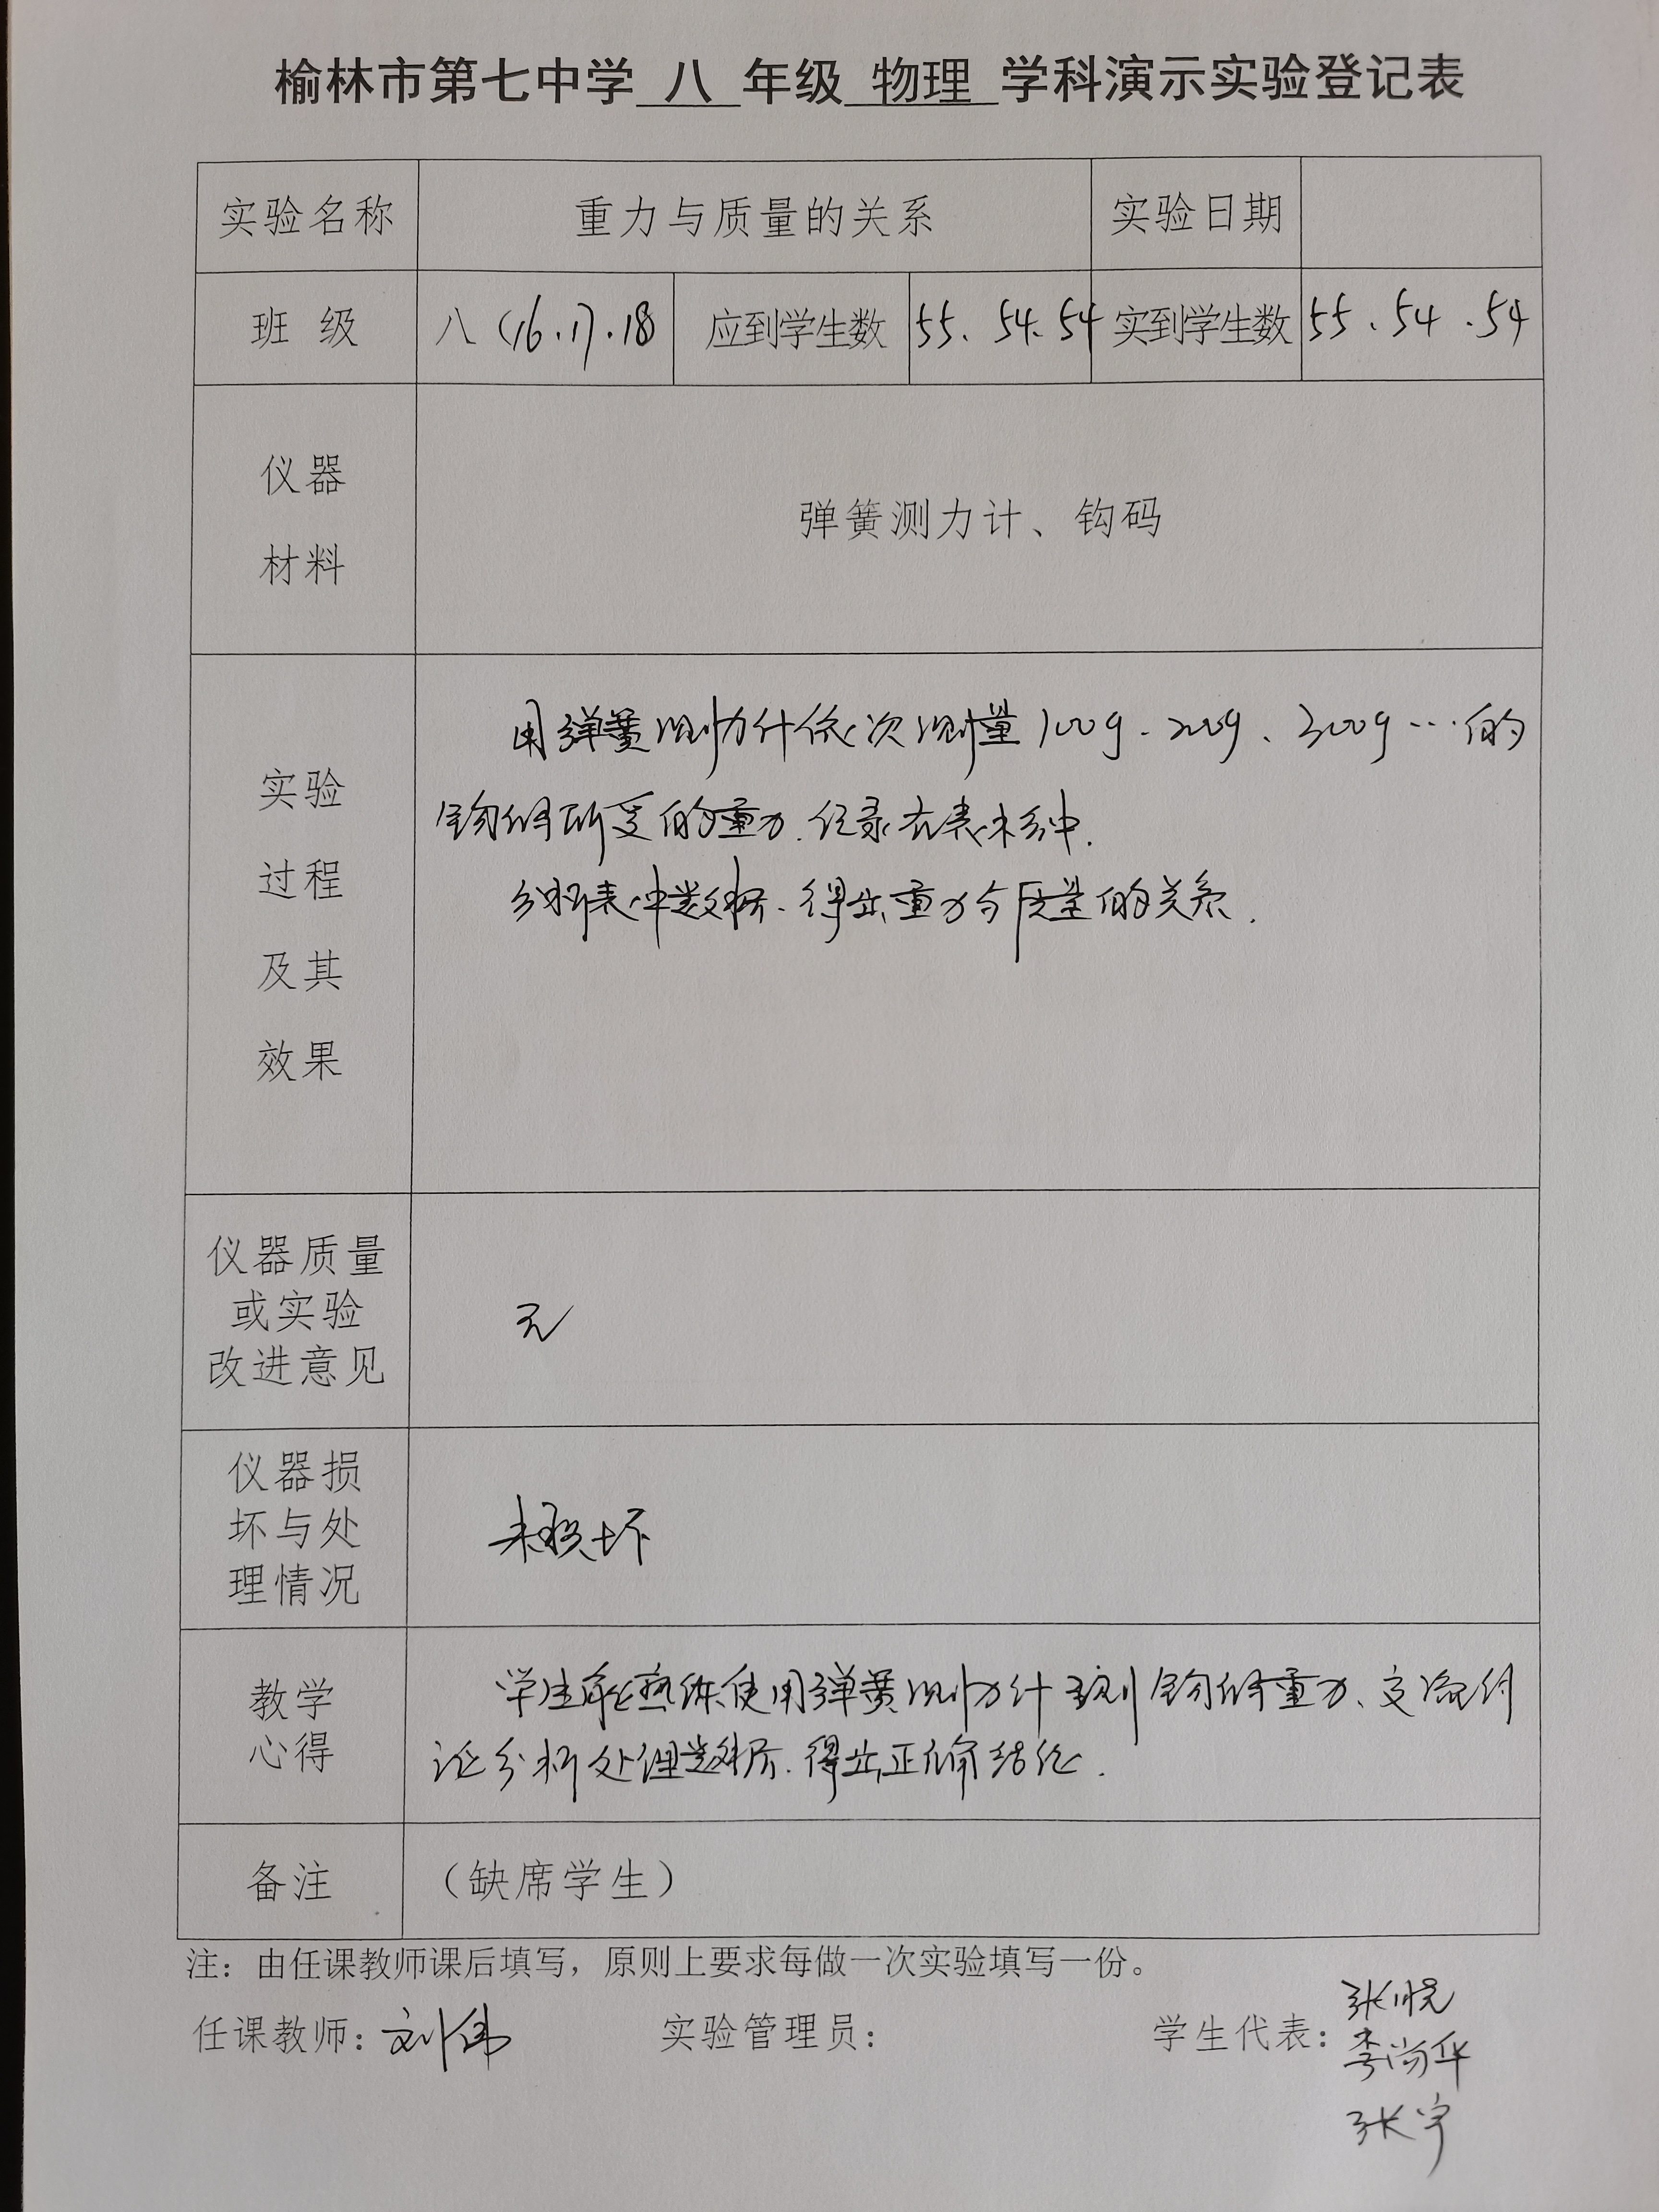 榆林市第七中学 八 年级 物理 学科演示实验登记表
实验名称 重力与质量的关系 实验日期
班 级 八(16.17.18) 应到学生数 55、54、54 实到学生数 55、54、54
仪器
材料
弹簧测力计、钩码
实验
过程
及其
效果
用弹簧测力计依次测量100g、200g、300g…的
钩码所受的重力.记录在表格中.
分析表中数据、得出重力与质量的关系.
仪器质量
或实验
改进意见
无
仪器损
坏与处
理情况
未损坏
教学
心得
学生能熟练使用弹簧测力计测钩码重力、交流讨
论分析处理数据.得出正确结论.
备注 (缺席学生)
注：由任课教师课后填写，原则上要求每做一次实验填写一份。
任课教师：刘伟 实验管理员： 学生代表：张悦
李尚华
张宇